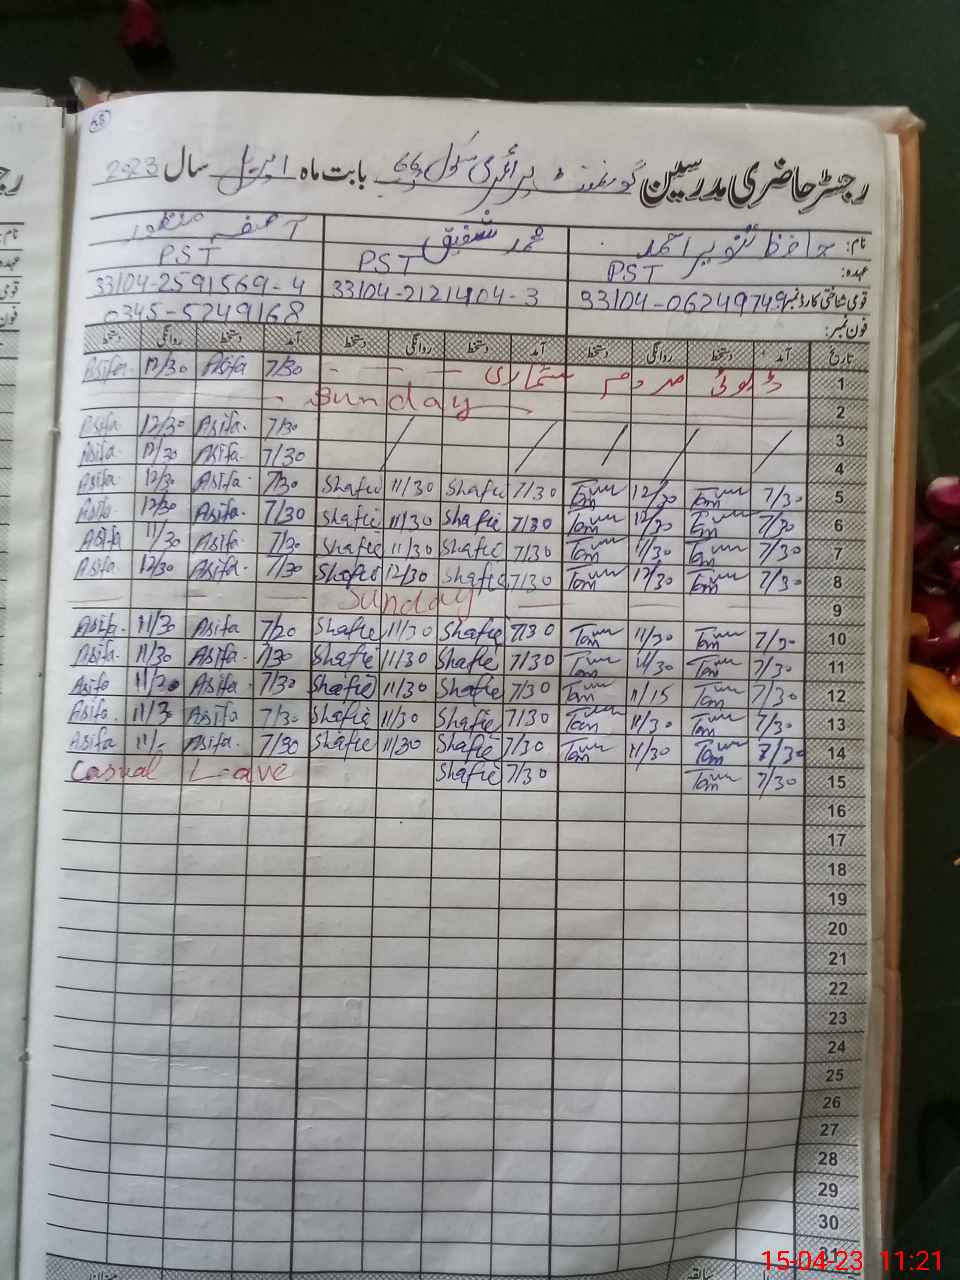 68
رجسٹر حاضری مدرسین گورنمنٹ پرائمری سکول 66 ج ب بابت ماہ اپریل سال 2023
نام: حافظ تنویر احمد محمد شفیق آصفہ منظور
عہدہ: PST PST PST
قومی شناختی کارڈ نمبر 33104-0624974-9 33104-2121404-3 33104-2591569-4
فون نمبر: 0345-5249168
تاریخ آمد دستخط روانگی دستخط آمد دستخط روانگی دستخط آمد دستخط روانگی دستخط
1 ڈیوٹی مردم شماری 7/30 Asifa 12/30 Asifa
2 Sunday
3 7/30 Asifa 12/30 Asifa
4 7/30 Asifa 12/30 Asifa
5 7/30 12/30 7/30 Shafie 11/30 Shafie 7/30 Asifa 12/30 Asifa
6 7/30 12/30 7/30 Shafie 11/30 Shafie 7/30 Asifa 12/30 Asifa
7 7/30 11/30 7/30 Shafie 11/30 Shafie 7/30 Asifa 11/30 Asifa
8 7/30 12/30 7/30 Shafie 12/30 Shafie 7/30 Asifa 12/30 Asifa
9 Sunday
10 7/30 11/30 7/30 Shafie 11/30 Shafie 7/30 Asifa 11/30 Asifa
11 7/30 11/30 7/30 Shafie 11/30 Shafie 7/30 Asifa 11/30 Asifa
12 7/30 11/15 7/30 Shafie 11/30 Shafie 7/30 Asifa 11/30 Asifa
13 7/30 11/30 7/30 Shafie 11/30 Shafie 7/30 Asifa 11/30 Asifa
14 7/30 11/30 7/30 Shafie 11/30 Shafie 7/30 Asifa 11/- Asifa
15 7/30 7/30 Shafie Casual Leave
16
17
18
19
20
21
22
23
24
25
26
27
28
29
30
31
15-04-23 11:21